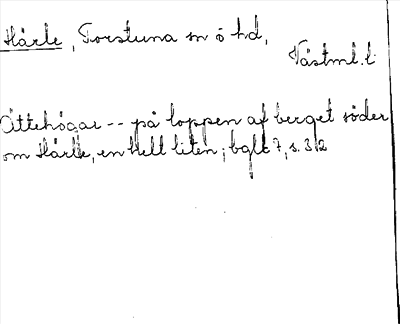 Härle, Torstuna sn ö hd,
Västml. l.
Ättehögar -- på toppen af berget söder
om Härle, en helt liten; bglt 7, s. 312